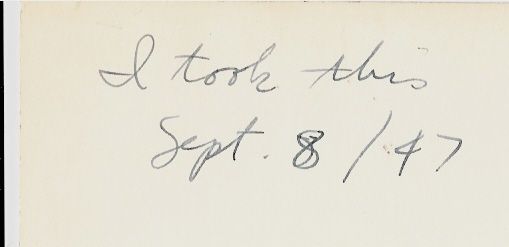 I took this
Sept. 8/47